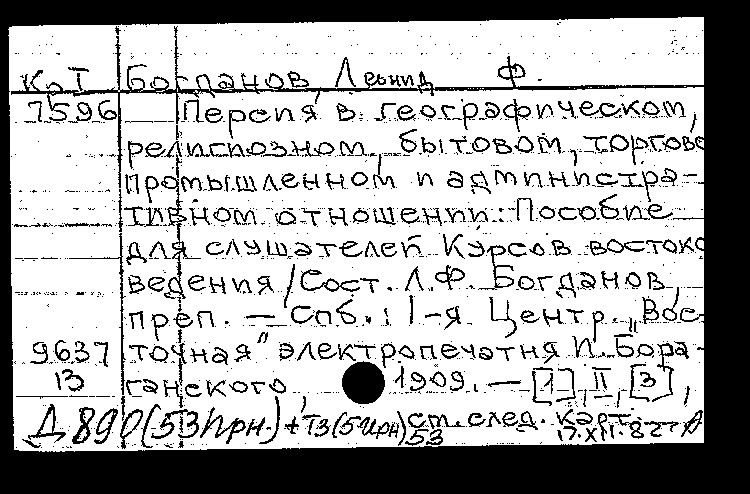 Кр I Богданов, Леонид Ф.
7596 Персия в географическом,
религиозном, бытовом, торгово
промышленном и администра-
тивном отношении: Пособие
для слушателей Курсов востоко
ведения / Сост. Л.Ф. Богданов,
преп. — Спб.: 1-я Центр. "Вос-
9637 точная" электропечатня И. Бора-
13 ганского, 1909. — [1], II, [3],
Д 890 (53Ирн.) + Т3(5Ирн) ст. след. карт.
53 17.XII.82